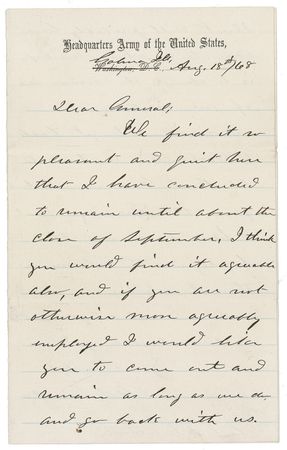 Headquarters Army of the United States,
Galena Ill,
Washington, D.C. Aug. 18th/68
Dear General,
We find it so
pleasant and quiet here
that I have concluded
to remain until about the
close of September. I think
you would find it agreeable
also, and if you are not
otherwise more agreeably
employed I would like
you to come out and
remain as long as we do
and go back with us.